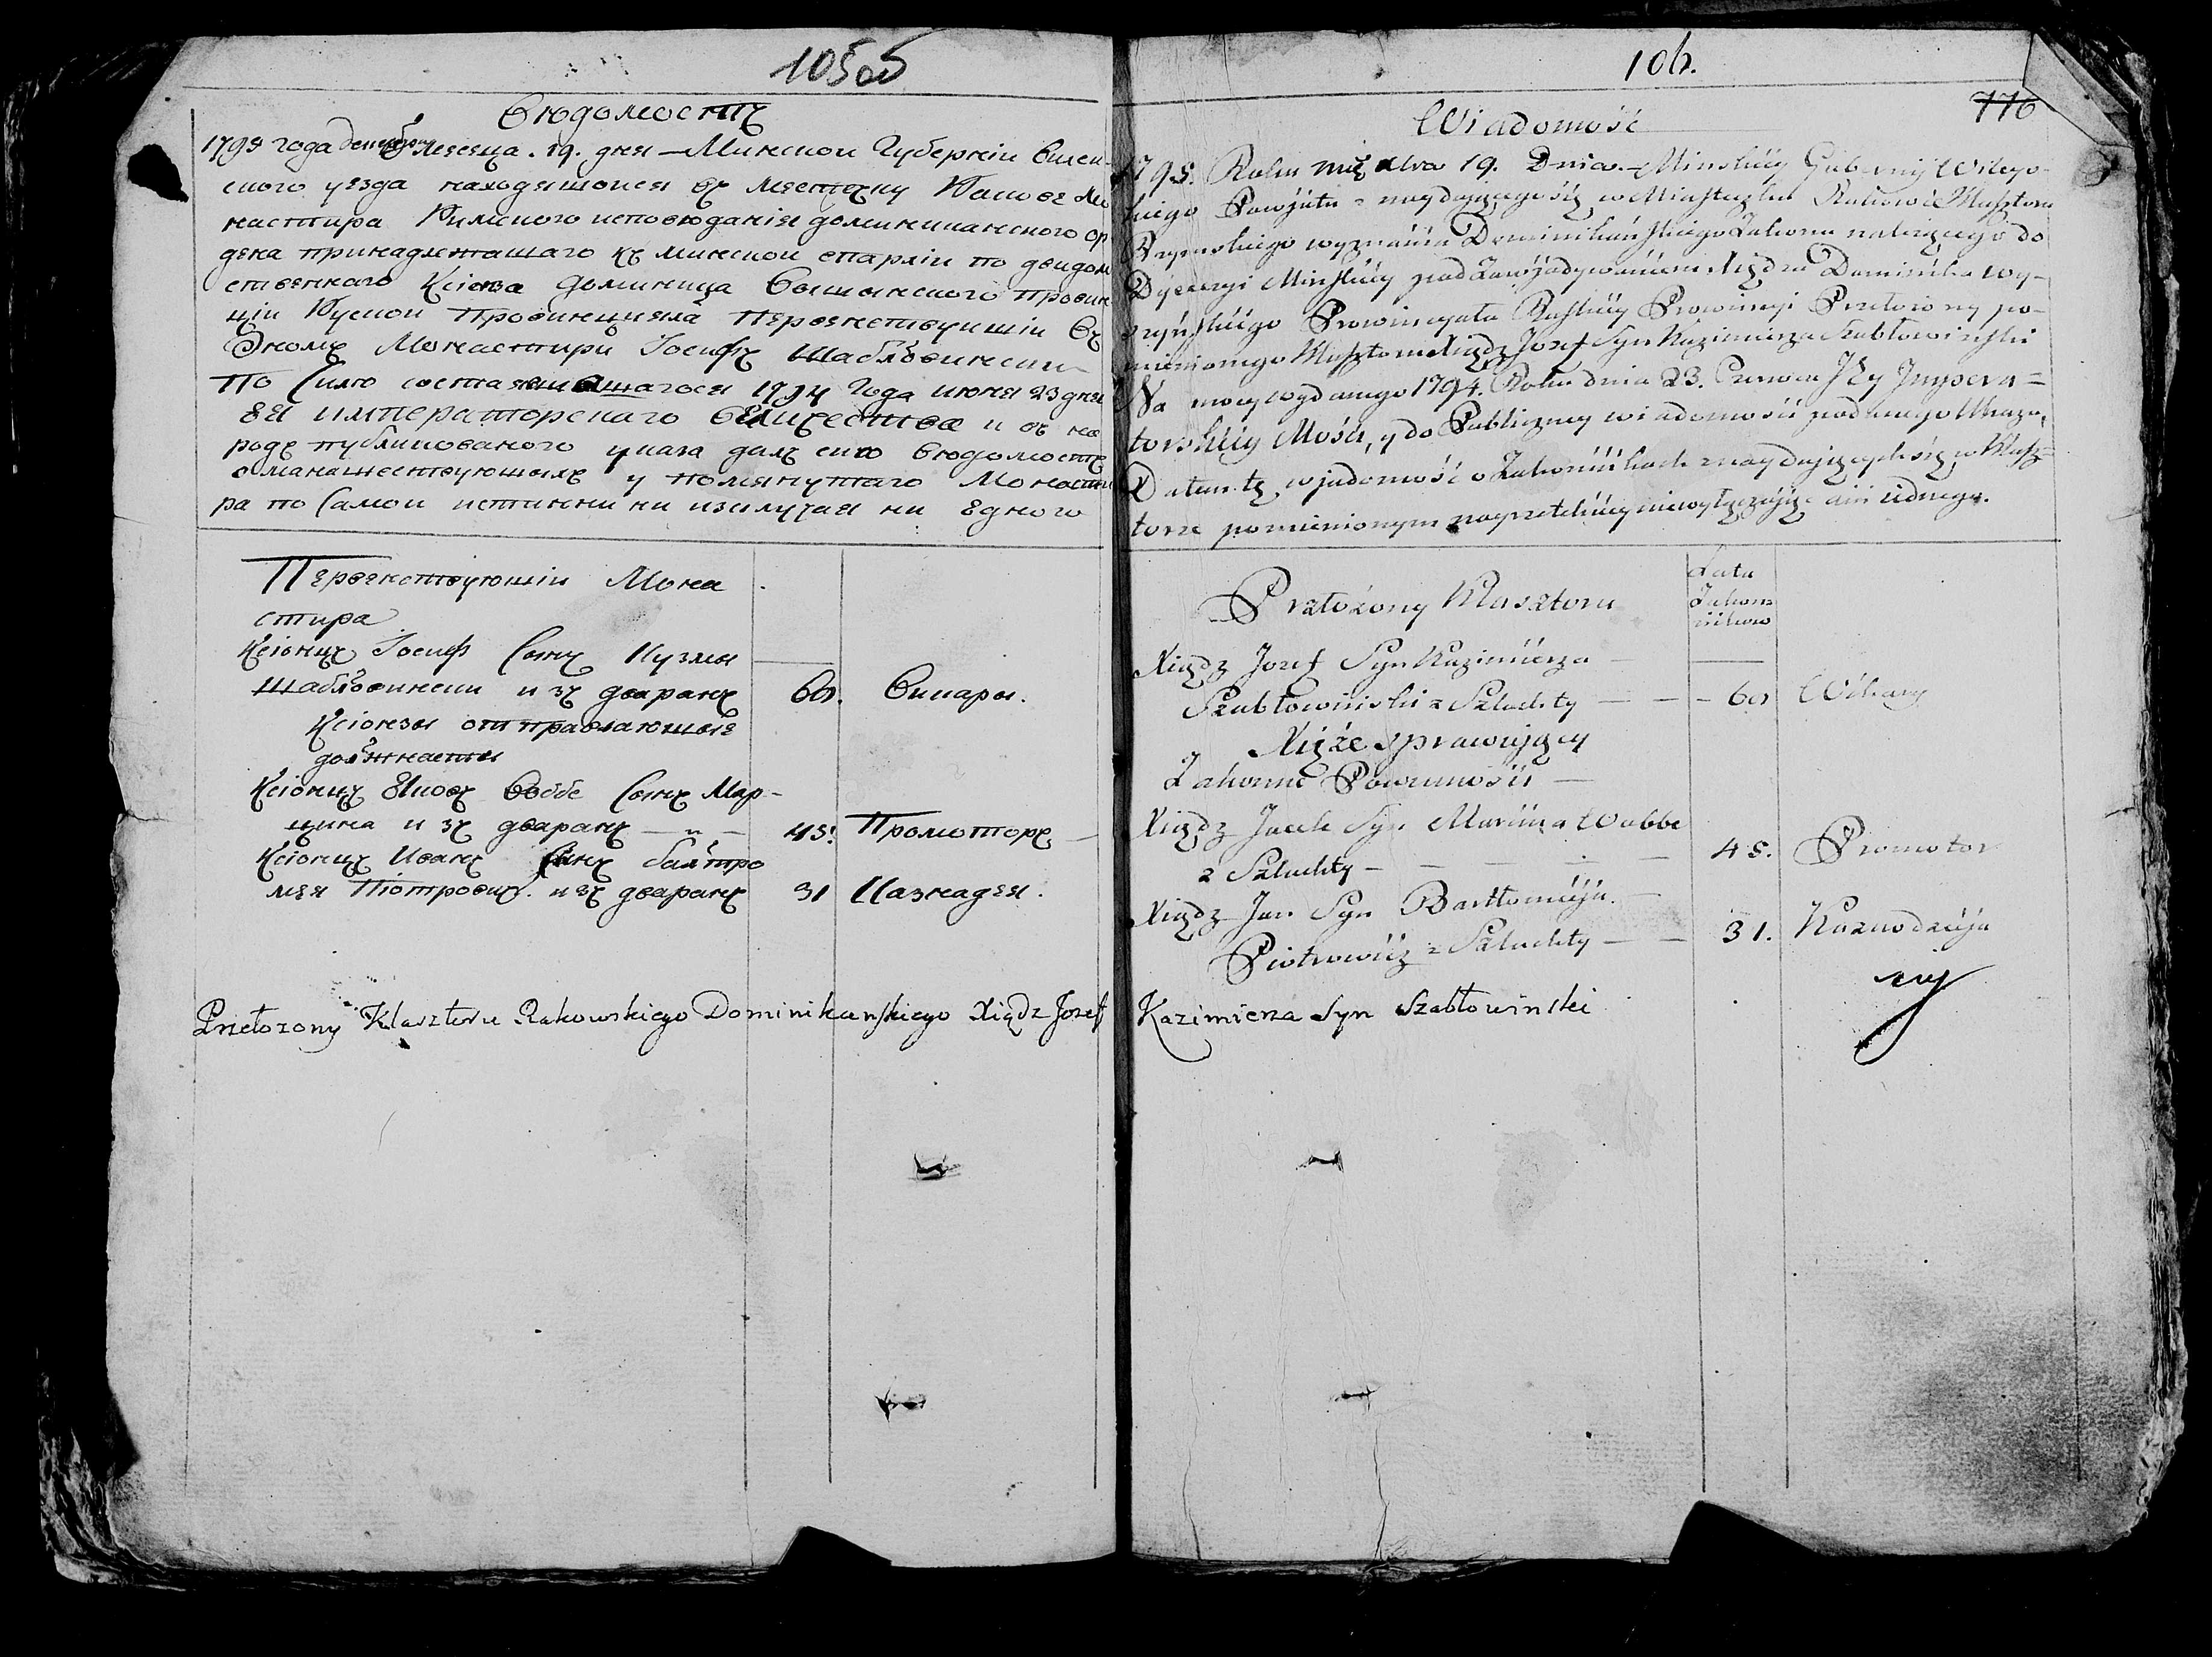 105об
Вѣдомость
1795 года декабря месеца. 19. дня — Минской Губерніи Вилей-
ского уезда находящомся въ местечку Ракове Мо
настира Римского исповѣданія доминиканского ор
дена принадлежащаго къ минской епархіи по
ственнаго Ксіонза Доминица Вышинского Провин
ціи Руской Провинцияла Первенствующій въ
Ономъ Монастири Іосифъ Шабловински
По Силю состоявшагося 1794 Года июня 23 дня
Ея императорскаго Величества и въ на
родъ публикованого указа далъ сию вѣдомость
о манашествующыхъ у помянутаго Монасти
ра по самой истинни ни изключая ни едного
Первенствующій Мона
стира
Ксіонцъ Іосиф Сынъ Кузмы
Шабловински изъ дваранъ 60. Викары.
Ксіонзы отправлающые
должнасты
Ксіонцъ Яцовъ Воббе Сынъ Мар-
цина изъ дваранъ — „ — 45. Промоторъ —
Ксіонцъ Иванъ Сынъ Балтро
мея Піотровичъ. изъ дваранъ 31 Казнадея.
106.
776
Wiadomość
1795. Roku 19. Dnia. — Minskiey Gubernij Wiley-
skiego Powjatu znaydującegosię w Miasteczku Rakowie Klasztoru
Rzymskiego wyznania Dominikańskiego Zakonu należącego do
Dyecezyi Minskiey pod Zawjadywaniem Xiędza Dominika Wy-
szyńskiego Prowincyała Ruskiey Prowincyi Przełożony po-
mienionego Klasztoru Xiądz Jozef Syn Kazimierza Szabłowinski
Na mocy wydanego 1794. Roku dnia 23. Czerwca Jey Impera=
torskiey Mości, y do Publiczney wiadomości podanego Ukazu,
Dałem tę wjadomość o Zakonnikach znaydujących się w Klasz=
torze pomienionym nayrzetelniey niewyłączając ani iednego.
Przełożony Klasztoru
Lata
Zakon=
ników
Xiądz Jozef Syn Kazimierza —
Szabłowinski z Szlachty — — — 60 Wikary
Xięże sprawujący
Zakonne Powinności —
Xiądz Jacek Syn Marcina Wobbe
z Szlachty — — — — — 45. Promotor
Xiądz Jan Syn Bartłomieja. —
Piotrowicz z Szlachty — — 31. Kaznodzieja
Przełozony Klasztoru Rakowskiego Dominikanskiego Xiądz Jozef Kazimierza Syn Szabłowinski